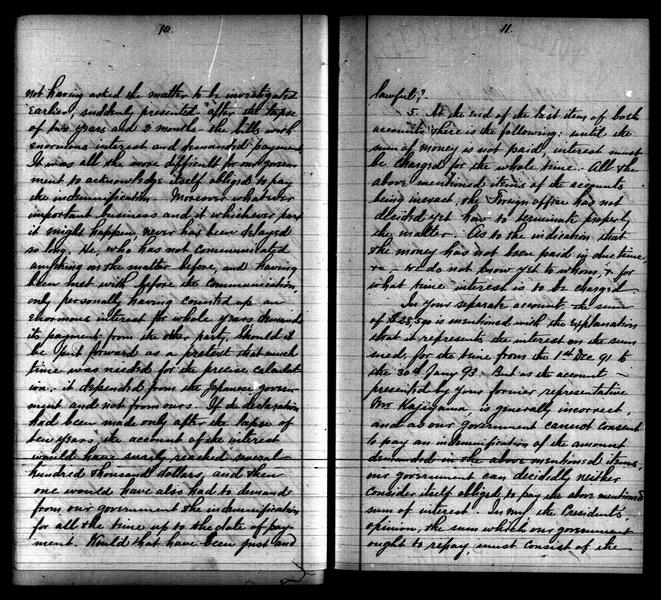 10.
not having asked the matter to be investigated
earlier, suddenly presented after the lapse
of two years and 2 months the bills with
enormous interest and demanded payment.
It was all the more difficult for our govern-
ment to acknowledge itself obliged to pay
the indemnification. Moreover whatever
important business and in whichever part
it might happen, never has been delayed
so long. He, who has not communicated
anything on the matter before, and having
been met with before the communication,
only personally having counted up an
enormous interest for whole years demands
its payment from the other party. Should it
be put forward as a pretext that much
time was needed for the precise calculat-
ion, it depended from the Japanese govern-
ment and not from ours. If the declaration
had been made only after the lapse of
ten years, the account of the interest
would have surely reached several
hundred thousand dollars, and then
one would have also had to demand
from our government the indemnification
for all the time up to the date of pay
ment. Would that have been just and
11.
lawful?
5. At the end of the last item of both
accounts there is the following: until the
sum of money is not paid, interest must
be charged for the whole time. All the
above mentioned items of the accounts
being inexact, the Foreign office had not
decided yet how to terminate properly
the matter. As to the indication that
the money has not been paid in due time,
we do not know yet to whom, & for
what time interest is to be charged
In your separate account the sum
of $28,500 is mentioned with the explanation
that it represents the interest on the sum
sued, for the time from the 1st Dec 91 to
the 30th Jany 93. But as the account
presented by your former representative
Mr Kajiyama, is generally incorrect,
and as our government cannot consent
to pay an indemnification of the amount
demanded in the above mentioned items,
our government can decidedly neither
consider itself obliged to pay the above mentioned
sum of interest. In my, the President's,
opinion, the sum which our government
ought to repay, must consist of the